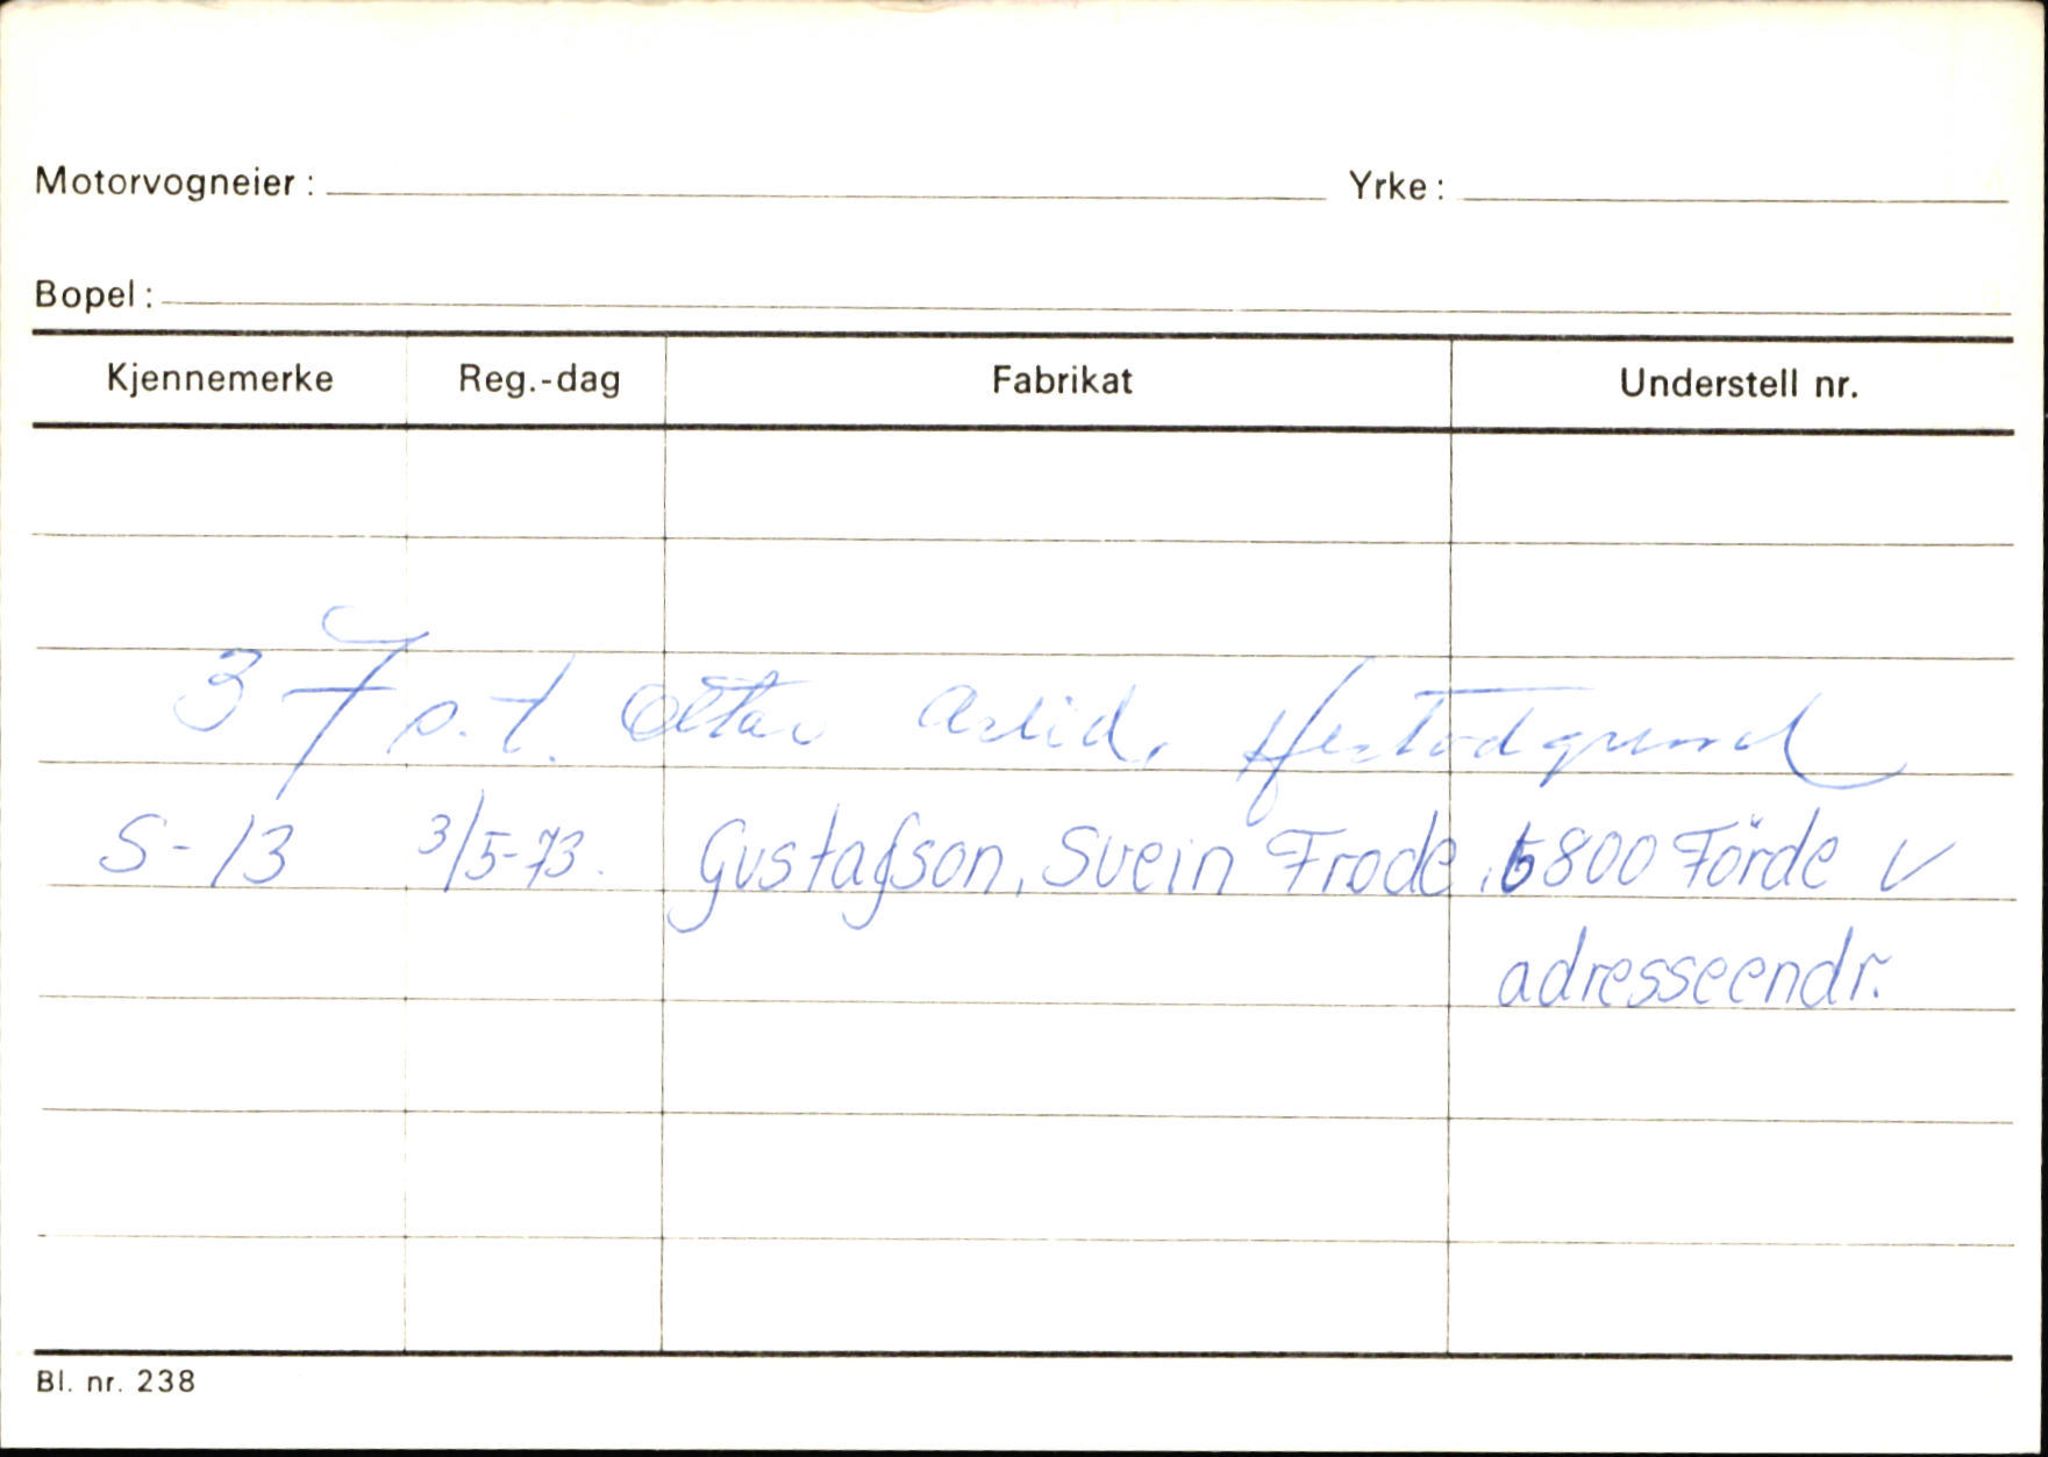 Motorvogneier : Yrke :
Bopel :
Kjennemerke Reg.-dag Fabrikat Understell nr.
37 p.t. Ottar
S-13 3/5-73. Gustafson, Svein Frode, 6800 Förde V
adresseendr.
Bl. nr. 238